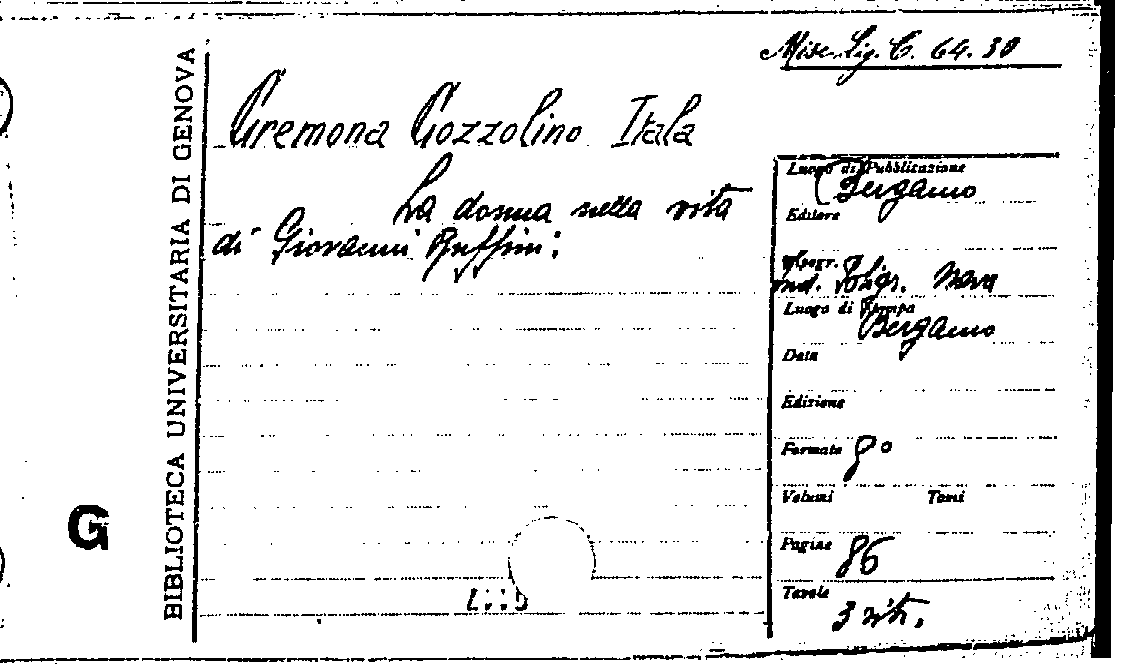 Misc. Lig. C. 64. 30
BIBLIOTECA UNIVERSITARIA DI GENOVA
G
Cremona Cozzolino Itala
La donna nella vita
di Giovanni Ruffini.
Luogo di Pubblicazione
(Bergamo
Editore
Tipogr.
Ind. Poligr. Nava
Luogo di Stampa
Bergamo
Data
Edizione
Formato 8°
Volumi Tomi
Pagine 86
Tavole
3 ritr.